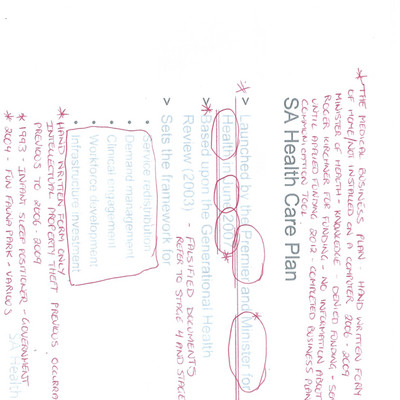 * THE MEDICAL BUSINESS PLAN. HAND WRITTEN FORM
OF HOME / NOT INSTALLED ON A COMPUTER 2006 - 2009
MINISTER OF HEALTH - KNOWLEDGE AND DENIED FUNDING - SEN
ROGER KIRCHNER FOR FUNDING - NO INFORMATION ABOUT
UNTIL APPLIED FUNDING 2012 - COMPLETED BUSINESS PLAN
COMMUNICATION TOOL.
SA Health Care Plan
> Launched by the Premier and Minister for
Health in June 2007
> Based upon the Generational Health
Review (2003) - FALSIFIED DOCUMENTS
REFER TO STAGE 4 AND STAGE
> Sets the framework for
• Service redistribution
• Demand management
• Clinical engagement
• Workforce development
• Infrastructure investment
* HAND WRITTEN FORM ONLY
INTELLECTUAL PROPERTY THEFT PREVIOUS OCCURRA
PREVIOUS TO 2006 - 2009
* 1993 - INFANT SLEEP POSITIONER - GOVERNMENT
* 2004 - FUN FAUNA PARK - VARIOUS
SA Health